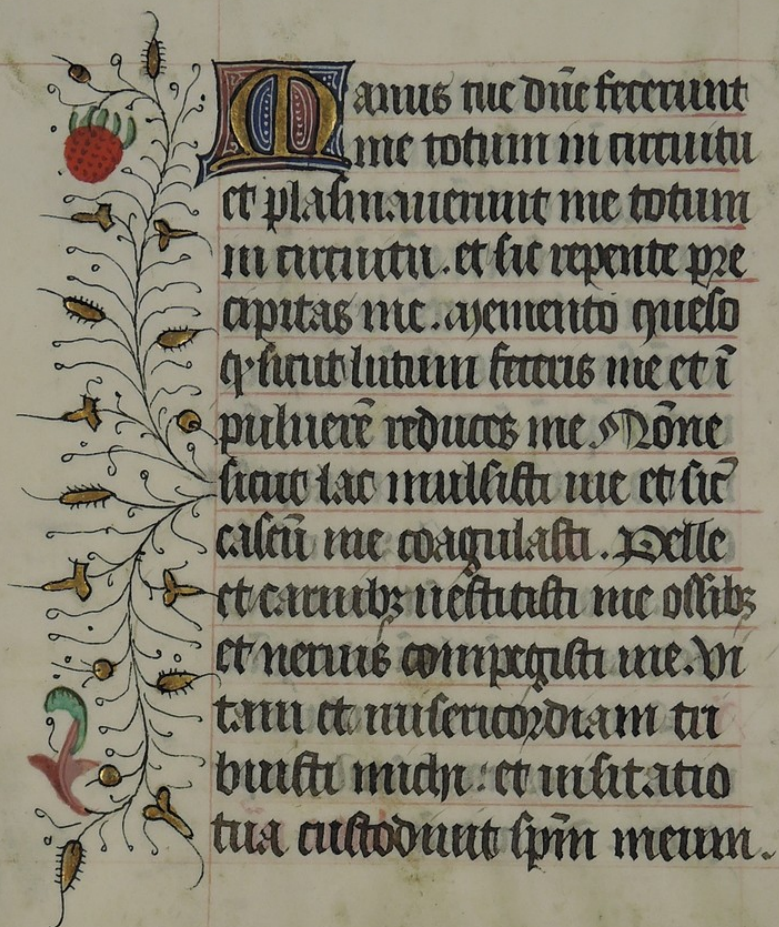 Manus tue dn̄e fecerunt
me totum in circuitu
et plasmauerunt me totum
in circuitu. et sic repente pre
cipitas me. Memento queso
qͥ sicut lutum feceris me et ī
puluerē reduces me Nōne
sicut lac mulsisti me et sic̄
caseū me coagulasti. Pelle
et carnibꝫ uestitisti me ossibꝫ
et neruis compegisti me. Vi
tam et misericordiam tri
buisti michi: et uisitatio
tua custodiuit sp̄m meum.